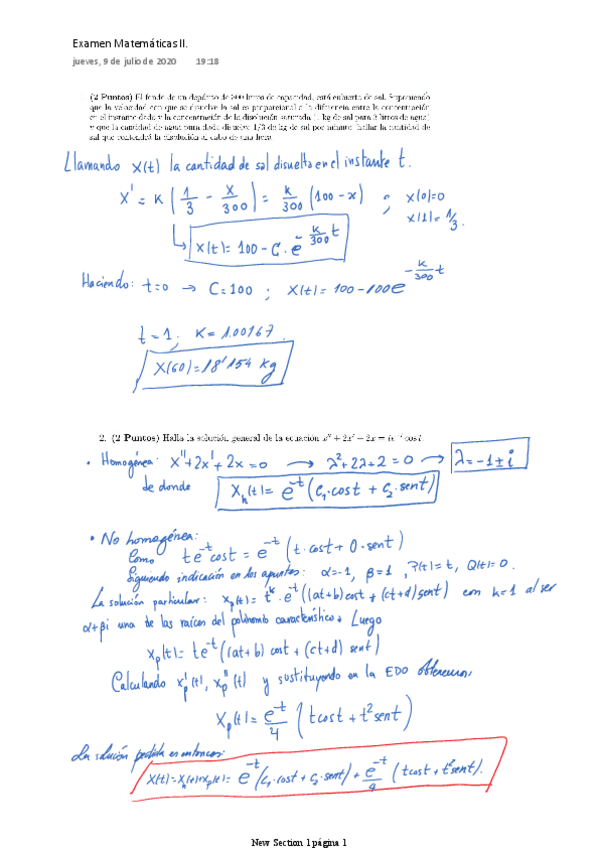 Examen Matemáticas II.
jueves, 9 de julio de 2020 19:18
(2 Puntos) El fondo de un depósito de 300 litros de capacidad, está cubierto de sal. Suponiendo
que la velocidad con que se disuelve la sal es proporcional a la diferencia entre la concentración
en el instante dado y la concentración de la disolución saturada (1 kg de sal para 3 litros de agua)
y que la cantidad de agua pura dada disuelve 1/3 de kg de sal por minuto, hallar la cantidad de
sal que contendrá la disolución al cabo de una hora.
Llamando x(t) la cantidad de sal disuelta en el instante t.
x' = K (1/3 - x/300) = k/300 (100 - x) ; x(0)=0
x(1)=1/3.
x(t)= 100 - C · e^{-K/300 t}
Haciendo: t=0 → C=100 ; x(t) = 100 - 100 e^{-K/300 t}
t = 1; K = 1.00167.
x(60)=18'154 kg
2. (2 Puntos) Halla la solución general de la ecuación x'' + 2x' + 2x = te^{-t} cos t.
• Homogénea: x''+2x'+2x=0 → λ²+2λ+2=0 → λ=-1±i
de donde x_h(t)= e^{-t}(C₁·cost + C₂·sent)
• No homogénea:
Como te^{-t}cost = e^{-t} (t·cost + 0·sent)
Siguiendo indicación en los apuntes: α=-1, β=1, P(t)=t, Q(t)=0.
La solución particular: x_p(t)= t^k·e^{-t}((at+b)cost + (ct+d)sent) con k=1 al ser
α+βi una de las raíces del polinomio característico. Luego
x_p(t)= te^{-t}((at+b) cost + (ct+d) sent)
Calculando x_p'(t), x_p''(t) y sustituyendo en la EDO obtenemos,
x_p(t)= e^{-t}/4 (tcost + t²sent)
La solución pedida es entonces:
x(t)=x_h(t)+x_p(t)= e^{-t}(C₁·cost + C₂·sent) + e^{-t}/4 (tcost + t²sent).
New Section 1 página 1